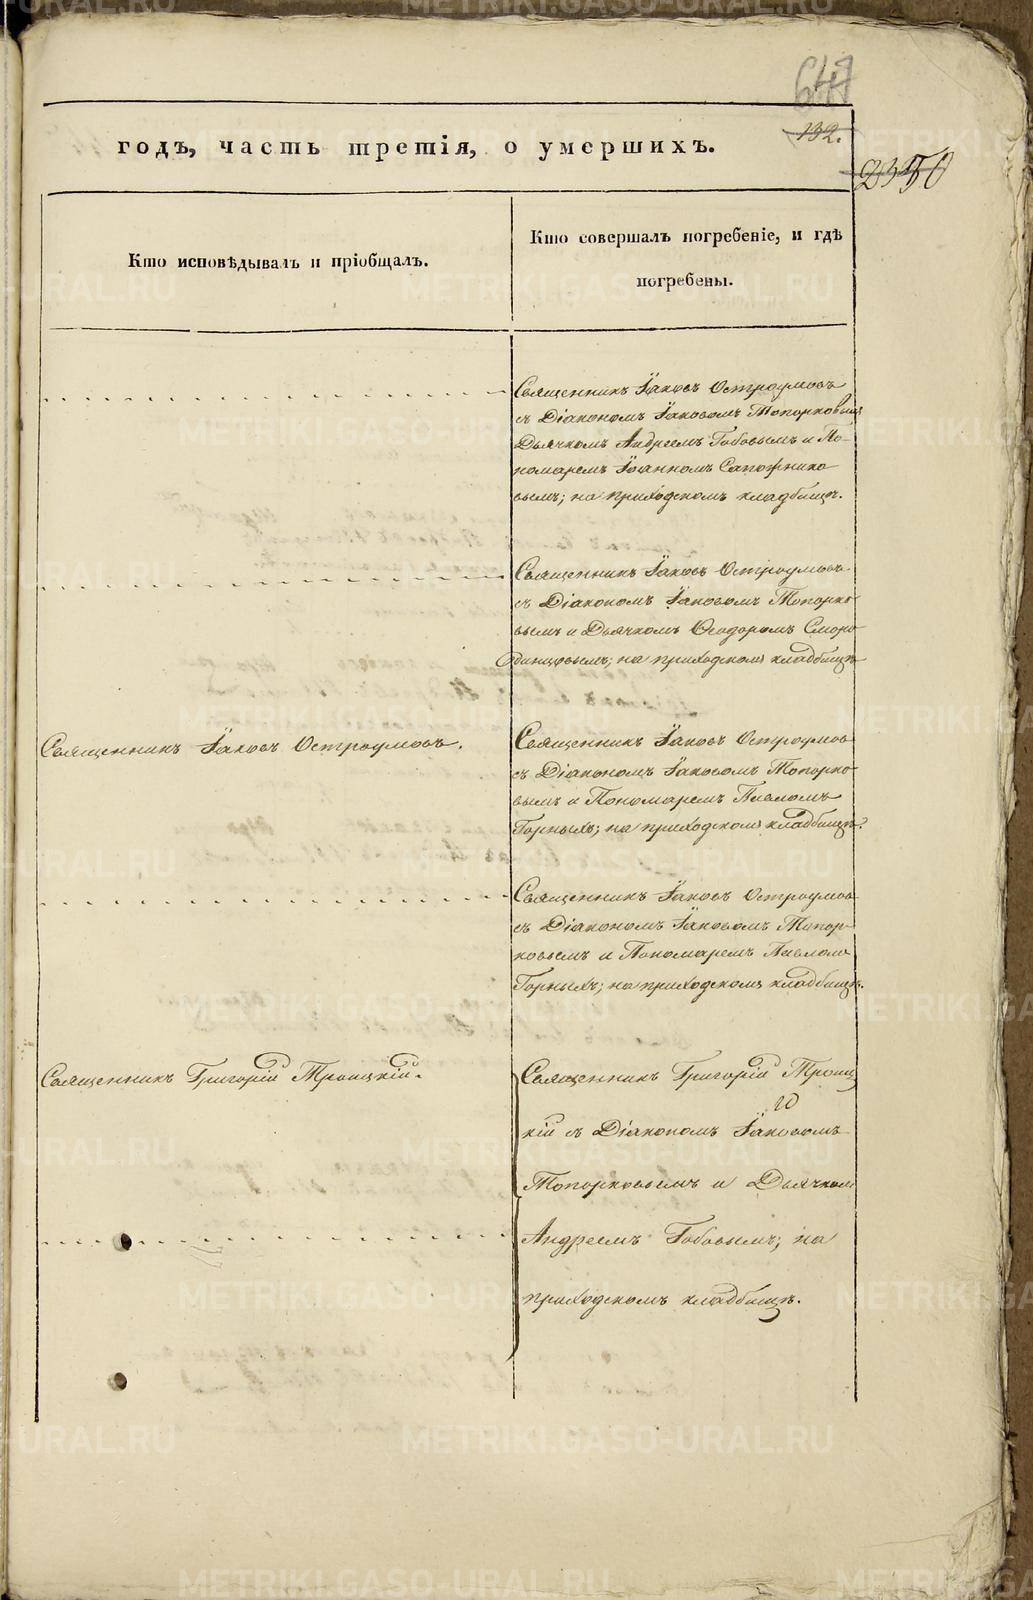 647
132.
годъ, часть третія, о умершихъ.
2350
Кто исповѣдывалъ и пріобщалъ.
Кто совершалъ погребеніе, и гдѣ
погребены.
Священникъ Іаковъ Остроумовъ
съ Діакономъ Іаковомъ Топорковымъ
Дьячкомъ Андреемъ Бобовымъ и По-
номаремъ Іоанномъ Сапожнико
вымъ; на приходскомъ кладбищѣ.
Священникъ Іаковъ Остроумовъ
съ Діакономъ Іаковомъ Топорко
вымъ и Дьячкомъ Ѳеодоромъ Сморо
динцовымъ; на приходскомъ кладбищѣ
Священникъ Іаковъ Остроумовъ.
Священникъ Іаковъ Остроумов
съ Діакономъ Іаковомъ Топорко-
вымъ и Пономаремъ Павломъ
Горныхъ; на приходскомъ кладбищѣ.
Священникъ Іаковъ Остроумов
съ Діакономъ Іаковомъ Топор-
ковымъ и Пономаремъ Павлом
Горныхъ; на приходскомъ кладбищѣ.
Священникъ Григорій Троицкій.
Священникъ Григорій Троиц
кій съ Діакономъ Іаковомъ
Топорковымъ и Дьячком
Андреемъ Бобовымъ; на
приходскомъ кладбищѣ.
METRIKI.GASO-URAL.RU